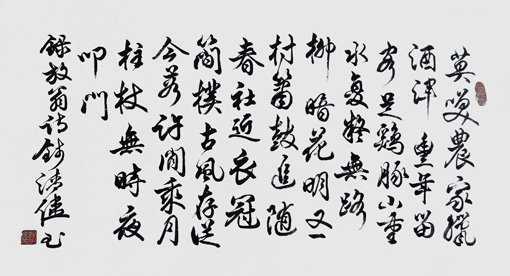 莫笑農家臘
酒渾豐年留
客足鷄豚山重
水复疑無路
柳暗花明又一
村簫鼓追随
春社近衣冠
簡樸古風存從
今若許閒乘月
柱杖無時夜
叩門
錄放翁詩